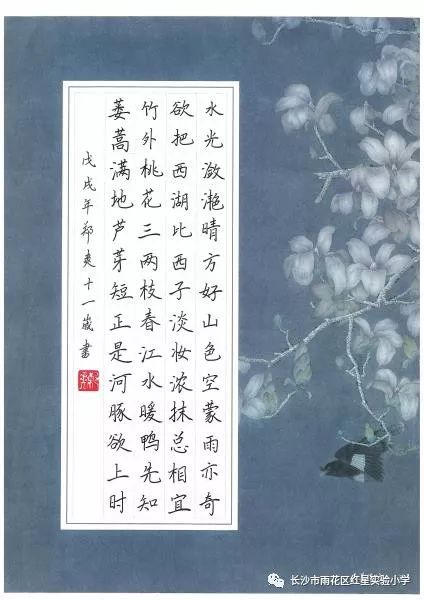 水光潋滟晴方好山色空蒙雨亦奇
欲把西湖比西子淡妆浓抹总相宜
竹外桃花三两枝春江水暖鸭先知
蒌蒿满地芦芽短正是河豚欲上时
戊戌年郑爽十一岁书
长沙市雨花区红星实验小学